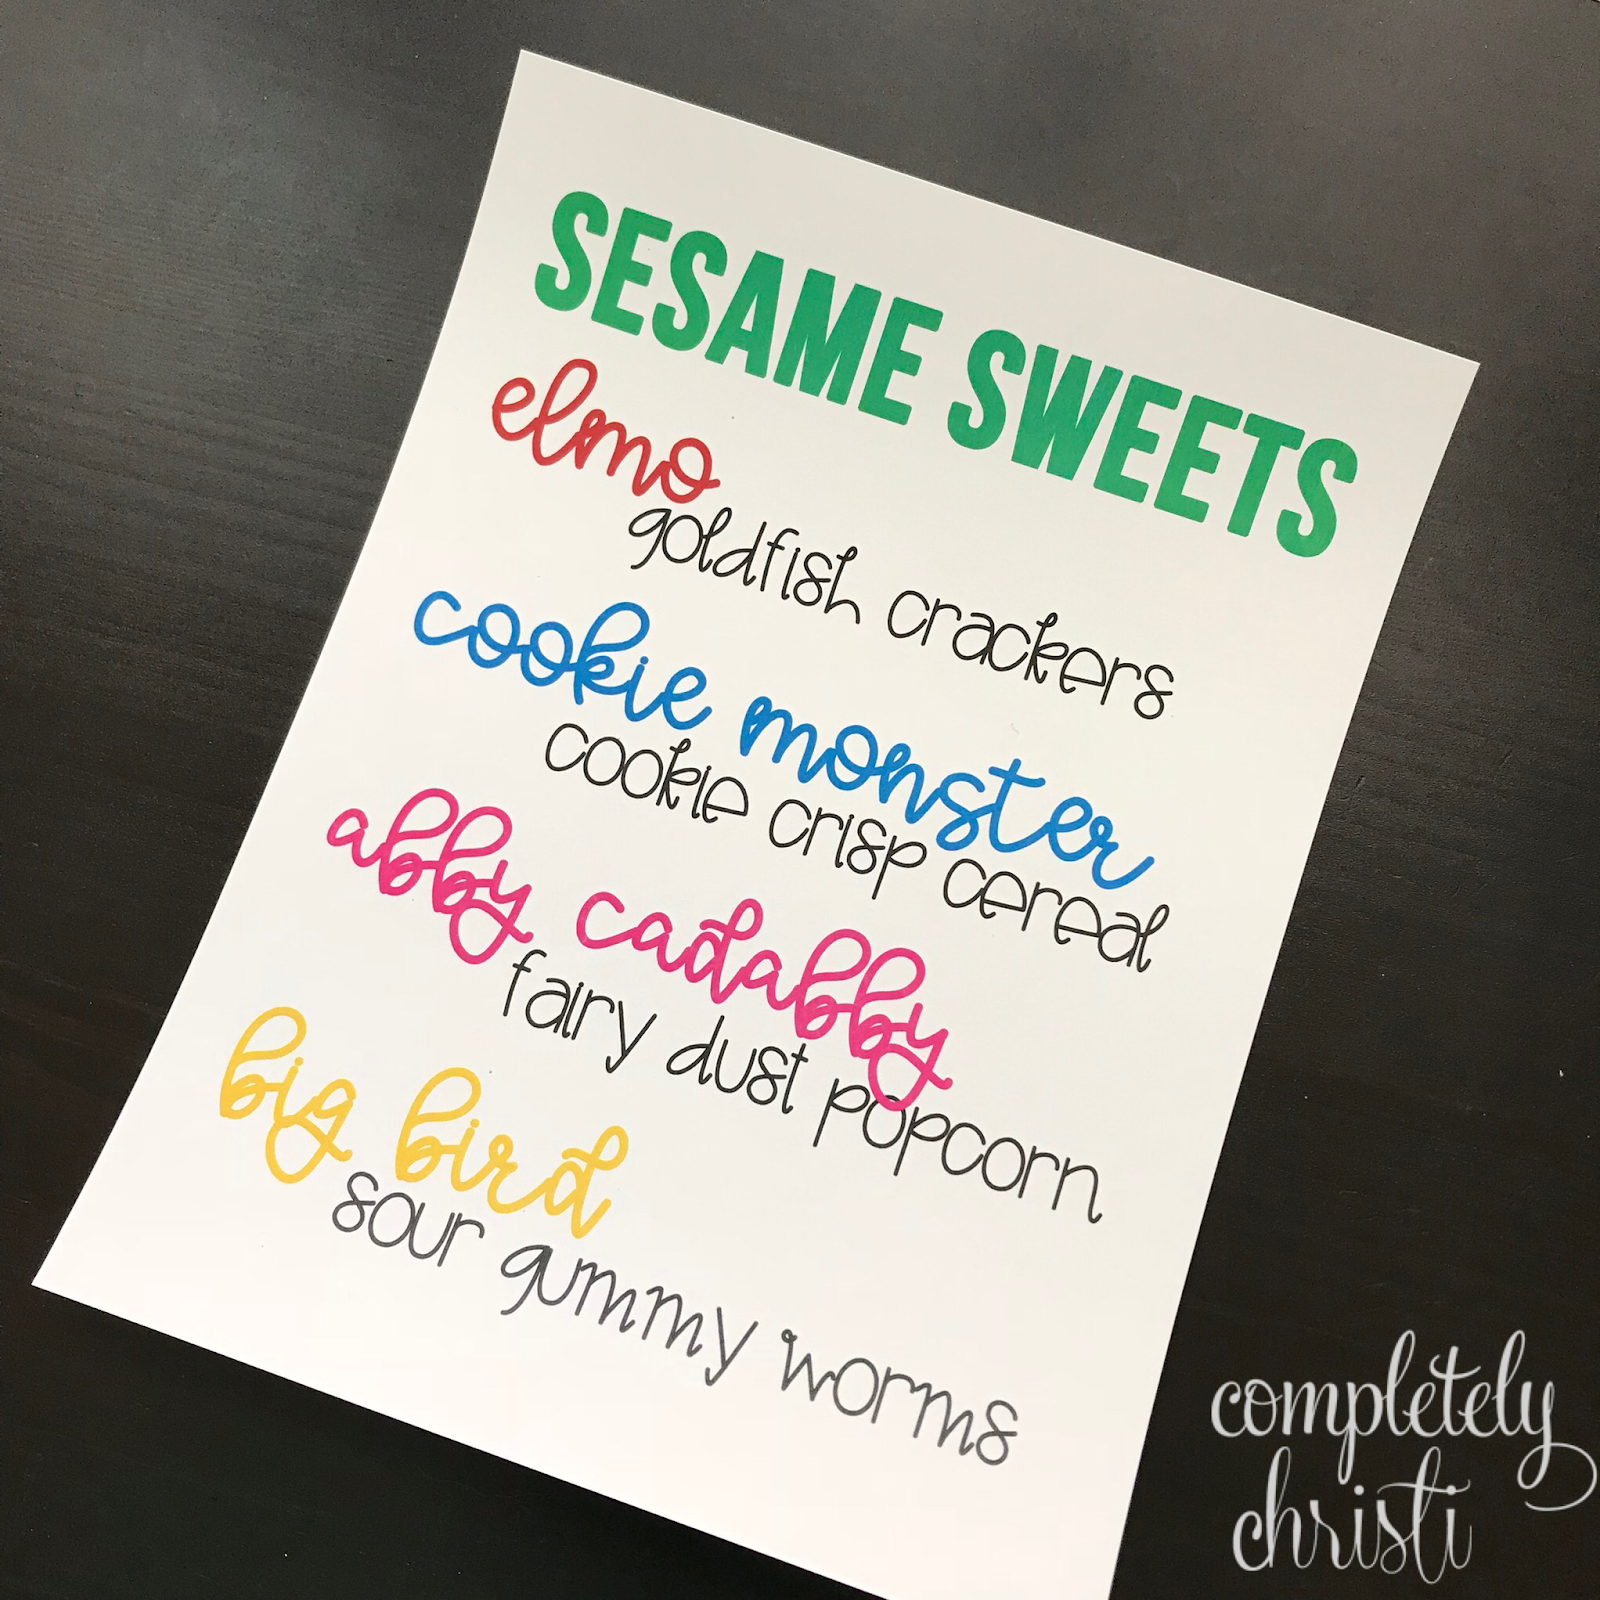 SESAME SWEETS
elmo
goldfish crackers
cookie monster
cookie crisp cereal
abby cadabby
fairy dust popcorn
big bird
sour gummy worms
completely
christi